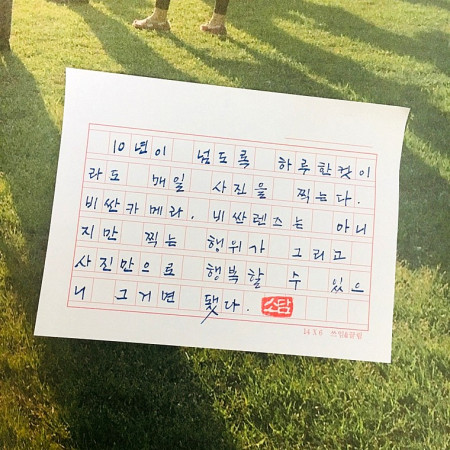 10년이 넘도록 하루한컷이
라도 매일 사진을 찍는다.
비싼카메라, 비싼렌즈는 아니
지만 찍는 행위가 그리고
사진만으로 행복할 수 있으
니 그거면 됐다. 소담
14 X 6